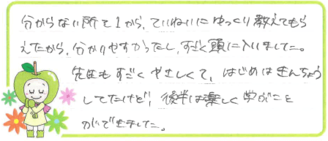 分からない所を1から、ていねいにゆっくり教えてもら
えたから、分かりやすかったし、すごく頭に入いました。
先生もすごくやさしくて、はじめはきんちょう
してたけど、後半は楽しく学ぶこと
ができました。